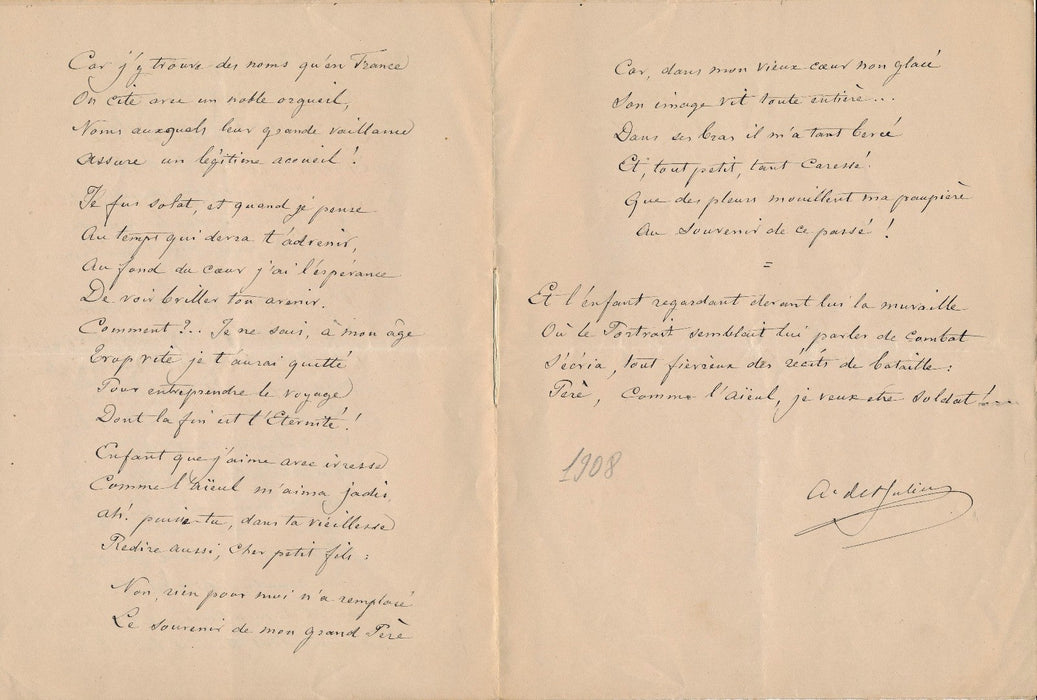 Car j'y trouve des noms qu'en France
On cite avec un noble orgueil,
Noms auxquels leur grande vaillance
Assure un légitime accueil!
Je fus soldat, et quand je pense
Au temps qui devra t'advenir,
Au fond du cœur j'ai l'espérance
De voir briller ton avenir.
Comment?.. Je ne sais, à mon âge
Trop vite je t'aurai quitté
Pour entreprendre le voyage
Dont la fin est l'Eternité!
Enfant que j'aime avec ivresse
Comme l'aïeul m'aima jadis,
Ah! puisse-tu, dans ta vieillesse
Redire aussi, cher petit fils:
Non, rien pour moi n'a remplacé
Le souvenir de mon grand Père
Car, dans mon vieux cœur non glacé
Son image vit toute entière...
Dans ses bras il m'a tant bercé
Et, tout petit, tant caressé.
Que des pleurs mouillent ma paupière
Au souvenir de ce passé!
=
Et l'enfant regardant devant lui la muraille
Où le Portrait semblait lui parler de combat
S'écria, tout fiévreux des récits de bataille:
Père, comme l'aïeul, je veux être soldat!....
1908
Ae de St Julien